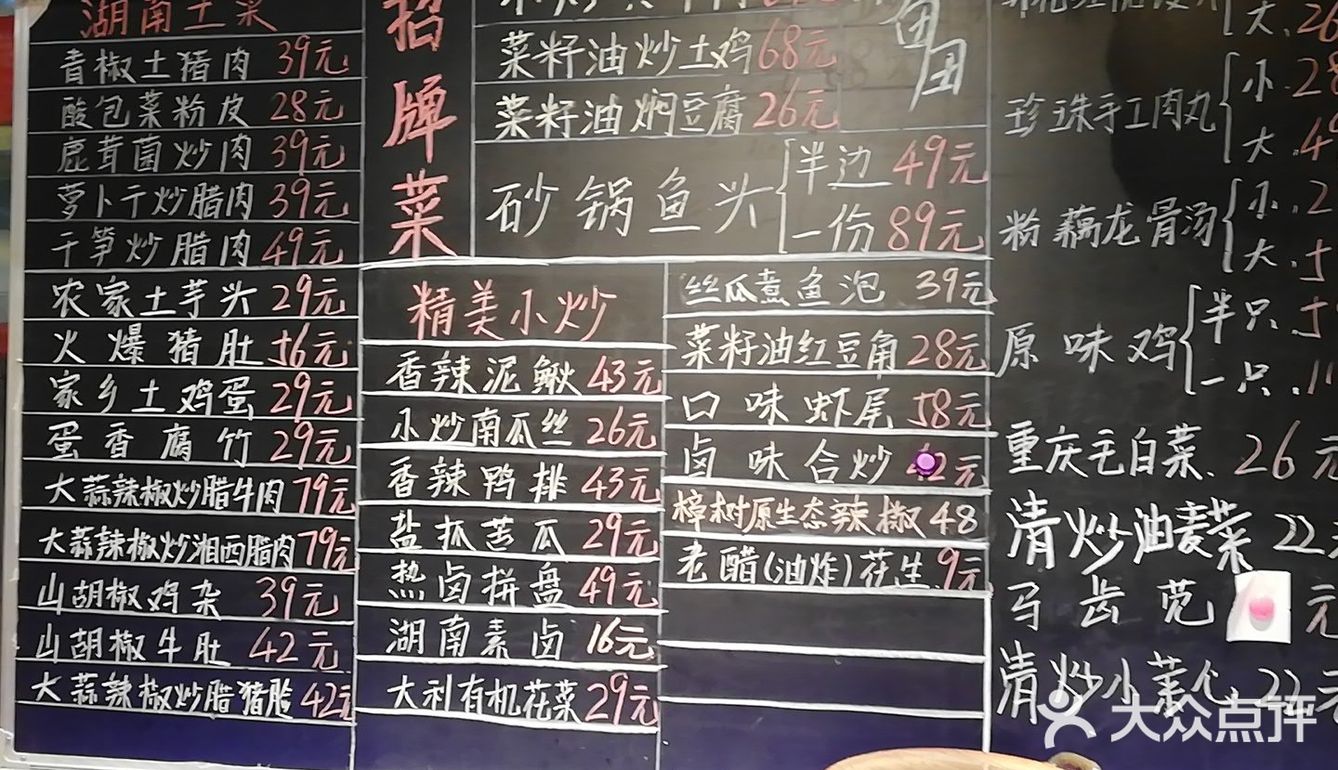 湖南土菜
青椒土猪肉 39元
酸包菜粉皮 28元
鹿茸菌炒肉 39元
萝卜干炒腊肉 39元
干笋炒腊肉 49元
农家土芋头 29元
火爆猪肚 56元
家乡土鸡蛋 29元
蛋香腐竹 29元
大蒜辣椒炒腊牛肉 79元
大蒜辣椒炒湘西腊肉 79元
山胡椒鸡杂 39元
山胡椒牛肚 42元
大蒜辣椒炒腊猪脸 42元
招牌菜
菜籽油炒土鸡 68元
菜籽油焖豆腐 26元
砂锅鱼头
半边 49元
一份 89元
精美小炒
香辣泥鳅 43元
小炒南瓜丝 26元
香辣鸭排 43元
盐抓苦瓜 29元
热卤拼盘 49元
湖南素卤 16元
大利有机花菜 29元
丝瓜煮鱼泡 39元
菜籽油红豆角 28元
口味虾尾 58元
卤味合炒 42元
樟树原生态辣椒 48
老醋(油炸)花生 9元
大.26
珍珠手工肉丸
小.28
大.
粉藕龙骨汤
小.2
大.5
原味鸡
半只
一只.
重庆毛白菜.26元
清炒油麦菜 22
马齿苋 元
清炒小 22元
大众点评